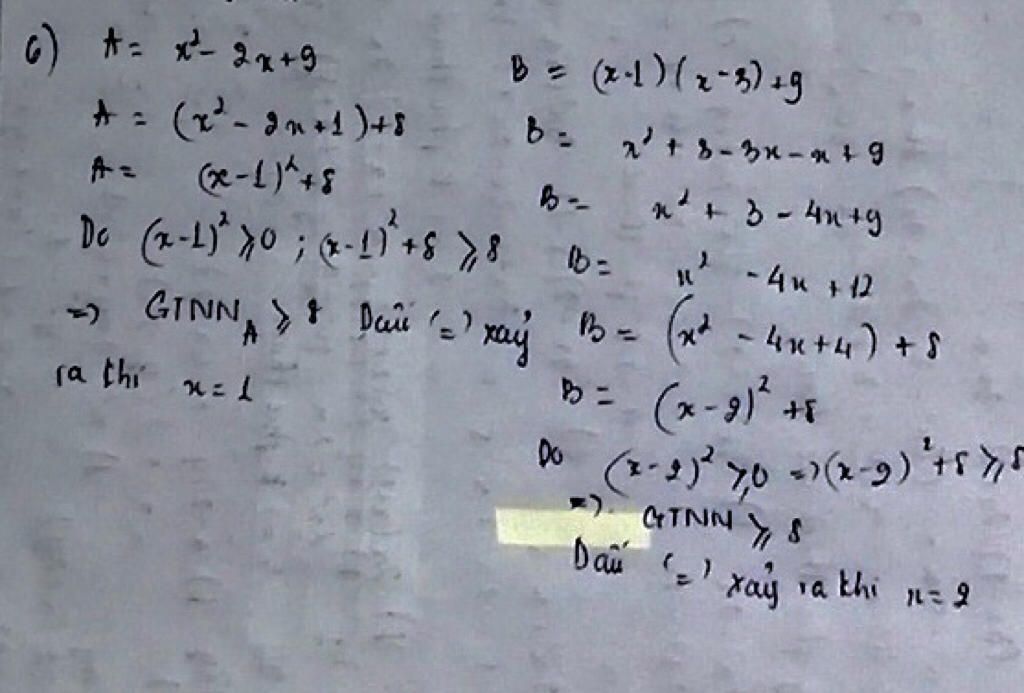 6) A = x² - 2x + 9
A = (x² - 2x + 1) + 8
A = (x - 1)² + 8
Do (x - 1)² ⩾ 0 ; (x - 1)² + 8 ⩾ 8
=> GTNN_A ⩾ 8 Dấu '=' xảy
ra khi x = 1
B = (x - 1)(x - 3) + 9
B = x² + 3 - 3x - x + 9
B = x² + 3 - 4x + 9
B = x² - 4x + 12
B = (x² - 4x + 4) + 8
B = (x - 2)² + 8
Do (x - 2)² ⩾ 0 => (x - 2)² + 8 ⩾ 8
=> GTNN ⩾ 8
Dấu '=' xảy ra khi x = 2